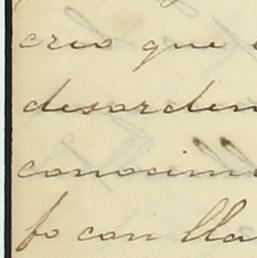 creo que
desorden
conocimi
fo con lla